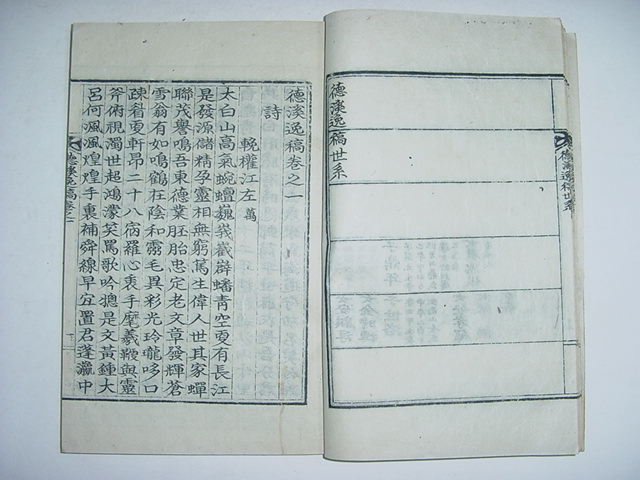 德溪逸稿世系
德溪逸稿世系
德溪逸稿卷之一
詩
輓權江左萬
太白山高氣蜿蟺巍峩巀嶭蟠青空更有長江
是發源儲精孕靈相無窮篤生偉人世其家蟬
聯茂譽鳴吾東德業胚胎忠定老文章發輝蒼
雪翁有如鳴鶴在陰和霱毛異彩光玲瓏哆口
疎眉更軒昂二十八宿羅心衷手麾羲鞭與靈
斧俯視濁世超鴻濛笑罵歌吟摠是文黃鍾大
呂何渢渢煌煌手裏補舜線早宜置君蓬瀛中
德溪逸稿卷之一